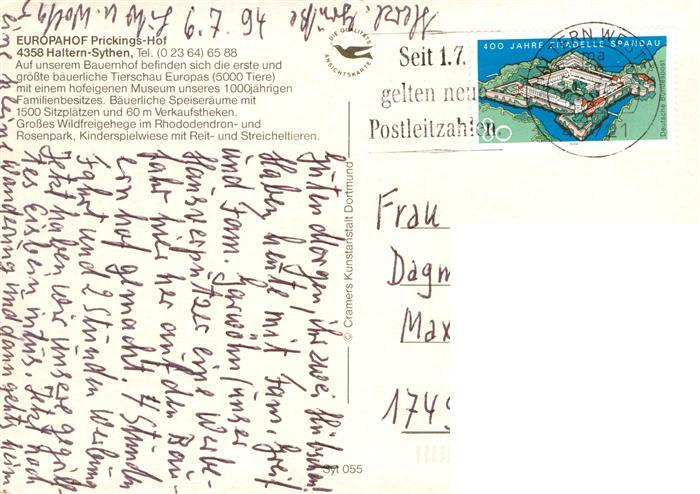 EUROPAHOF Prickings-Hof
4358 Haltern-Sythen, Tel. (0 23 64) 65 88
Auf unserem Bauernhof befinden sich die erste und
größte bäuerliche Tierschau Europas (5000 Tiere)
mit einem hofeigenen Museum unseres 1000jährigen
Familienbesitzes. Bäuerliche Speiseräume mit
1500 Sitzplätzen und 60 m Verkaufstheken.
Großes Wildfreigehege im Rhododendron- und
Rosenpark, Kinderspielwiese mit Reit- und Streicheltieren.
DIE QUALITÄTS
ANSICHTSKARTE
Seit 1.7.
gelten neu
Postleitzahlen
400 JAHRE ZITADELLE SPANDAU
80
Deutsche Bundespost
Guten Morgen, ihr zwei Hübschen!
Haben heute mit Fam. Greif
und Fam. Gerwöhn (unser
Hausverwalter) eine Werbe-
fahrt hier her auf den Bau-
ernhof gemacht. 4 Stunden
Fahrt und 2 Stunden Werbung
Jetzt haben wir unsere gegrill-
tes Eisbein intus. Jetzt noch
eine kleine Wanderung und dann gehts heim
Herzl. Grüße
Frau
Dagm
Max
1749
© Cramers Kunstanstalt Dortmund
Syt 055